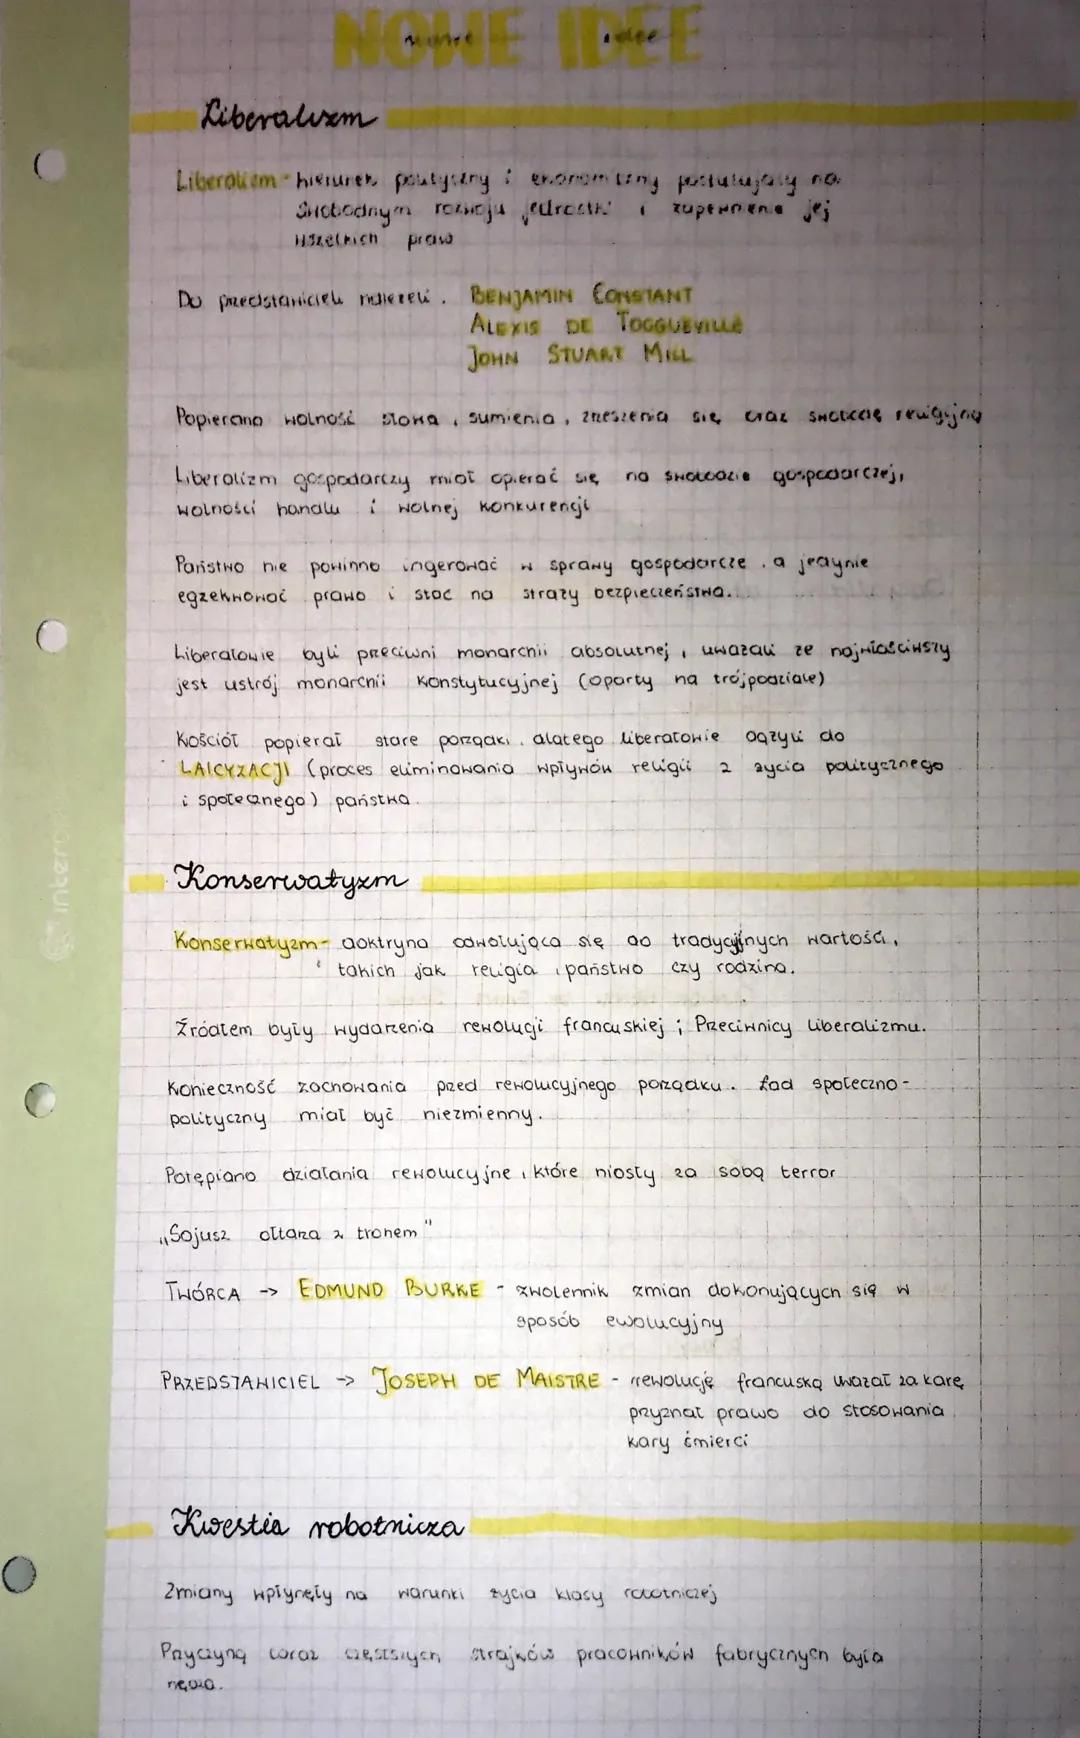 NOWE IDEE
nowe idee
Liberalizm
Liberalizm - kierunek polityczny i ekonomiczny postulujący na
swobodnym rozwoju jednostki i zapewnienie jej
wszelkich praw
Do przedstawicieli należeli. BENJAMIN CONSTANT
ALEXIS DE TOCGUEVILLE
JOHN STUART MILL
Popierano wolność słowa, sumienia, zrzeszenia się oraz swobodę religijną
Liberalizm gospodarczy miał opierać się na swobodzie gospodarczej,
wolności handlu i wolnej konkurencji
Państwo nie powinno ingerować w sprawy gospodarcze, a jedynie
egzekwować prawo i stać na straży bezpieczeństwa.
Liberałowie byli przeciwni monarchii absolutnej, uważali że najwłaściwszy
jest ustrój monarchii konstytucyjnej (oparty na trójpodziale)
Kościół popierał stare porządki, dlatego liberałowie dążyli do
LAICYZACJI (proces eliminowania wpływów religii z życia politycznego
i społecznego) państwa.
interdruk
Konserwatyzm
Konserwatyzm - doktryna odwołująca się do tradycyjnych wartości,
takich jak religia, państwo czy rodzina.
Źródłem były wydarzenia rewolucji francuskiej; Przeciwnicy liberalizmu.
Konieczność zachowania przed rewolucyjnego porządku. Ład społeczno-
polityczny miał być niezmienny.
Potępiano działania rewolucyjne, które niosły za sobą terror
„Sojusz ołtarza z tronem"
TWÓRCA -> EDMUND BURKE - zwolennik zmian dokonujących się w
sposób ewolucyjny
PRZEDSTAWICIEL -> JOSEPH DE MAISTRE - rewolucję francuską uważał za karę,
przyznał prawo do stosowania
kary śmierci
Kwestia robotnicza
Zmiany wpłynęły na warunki życia klasy robotniczej
Przyczyną coraz częstszych strajków pracowników fabrycznych była
nędza.